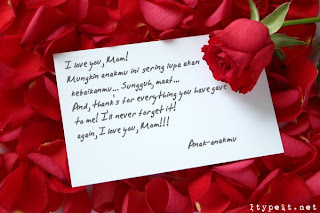 I love you, Mom!
Mungkin anakmu ini sering lupa akan
kebaikanmu... Sungguh, maaf...
And, thank's for everything you have gave
to me! I'll never forget it!
again, I love you, Mom!!!
Anak-anakmu
Itype it.net